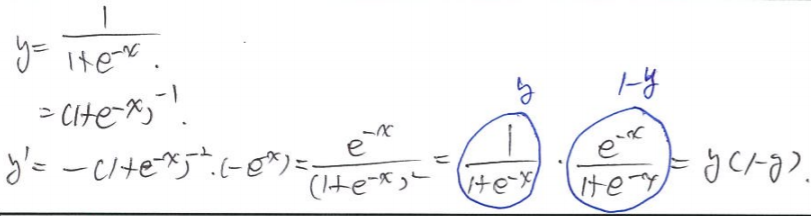 y = 1/(1+e^{-x}).
= (1+e^{-x})^{-1}.
y 1-y
y' = -(1+e^{-x})^{-2}·(-e^{-x}) = e^{-x}/(1+e^{-x})^2 = 1/(1+e^{-x}) · e^{-x}/(1+e^{-x}) = y(1-y).